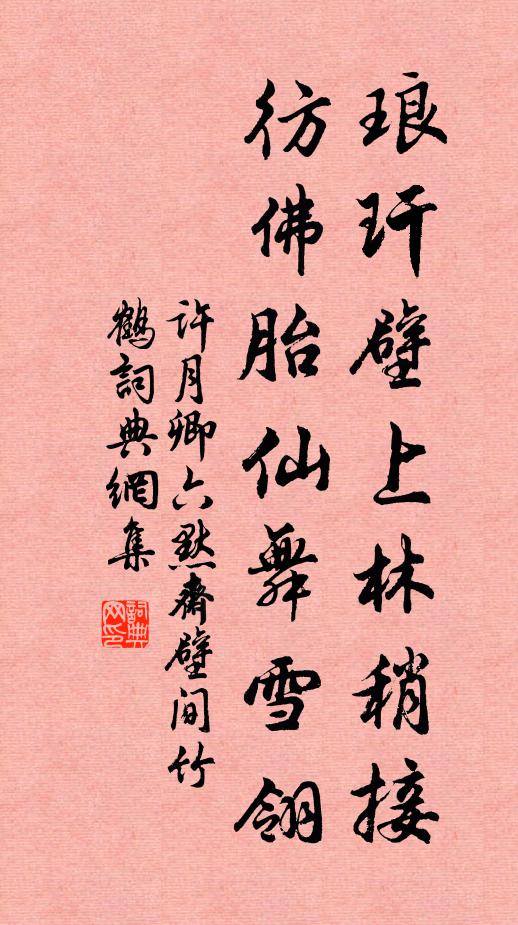 琅玕壁上林稍接
彷佛胎仙舞雪翎
许月卿六默斋壁间竹
鹤词典網集
詞典网印